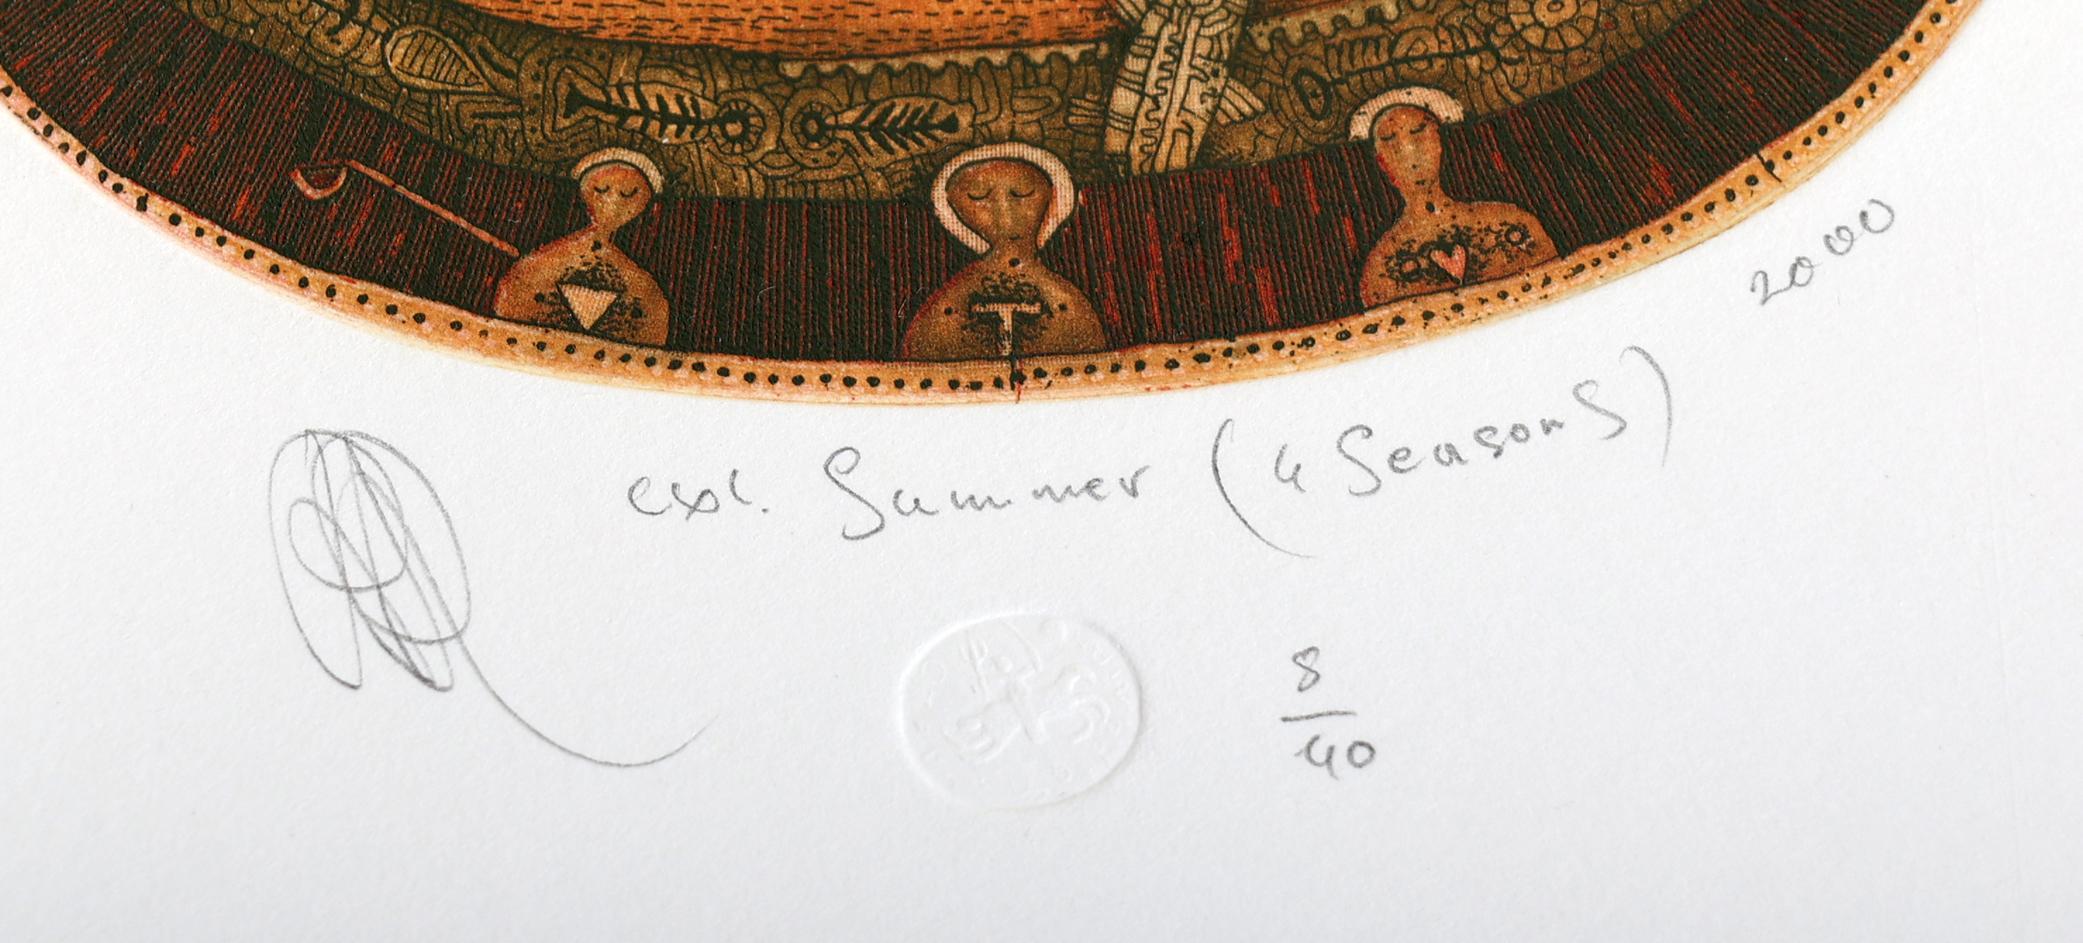 exl. Summer (4 Seasons)
2000
8/40
T